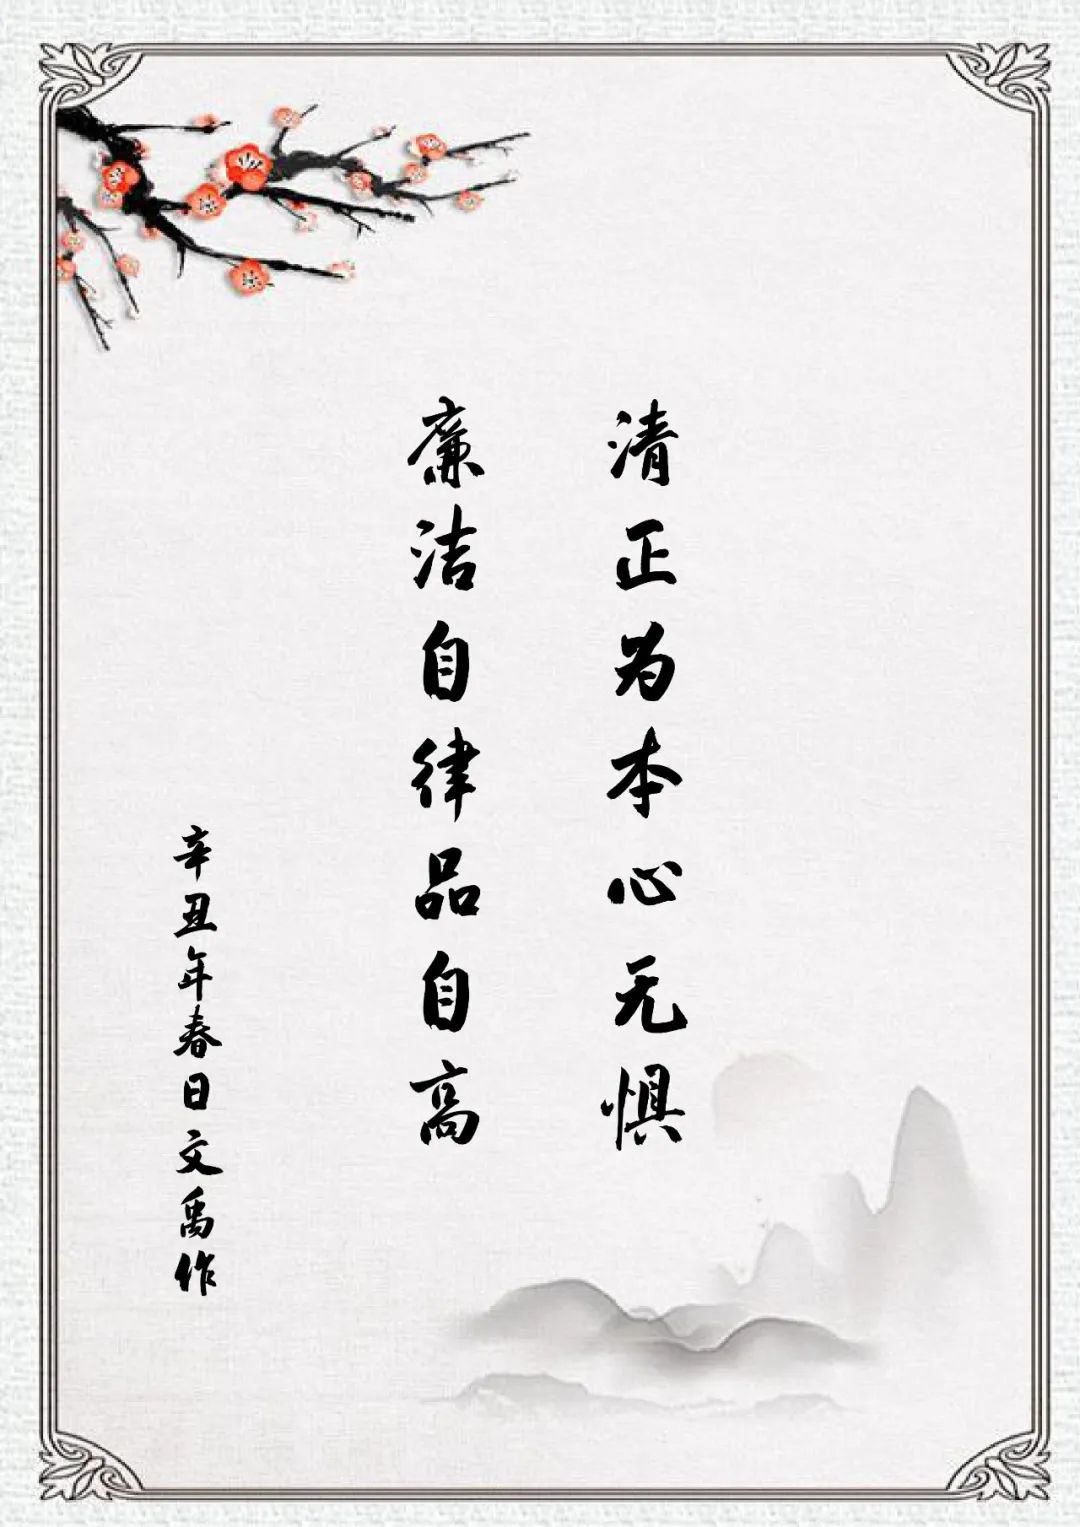 清正为本心无惧
廉洁自律品自高
辛丑年春日文禹作